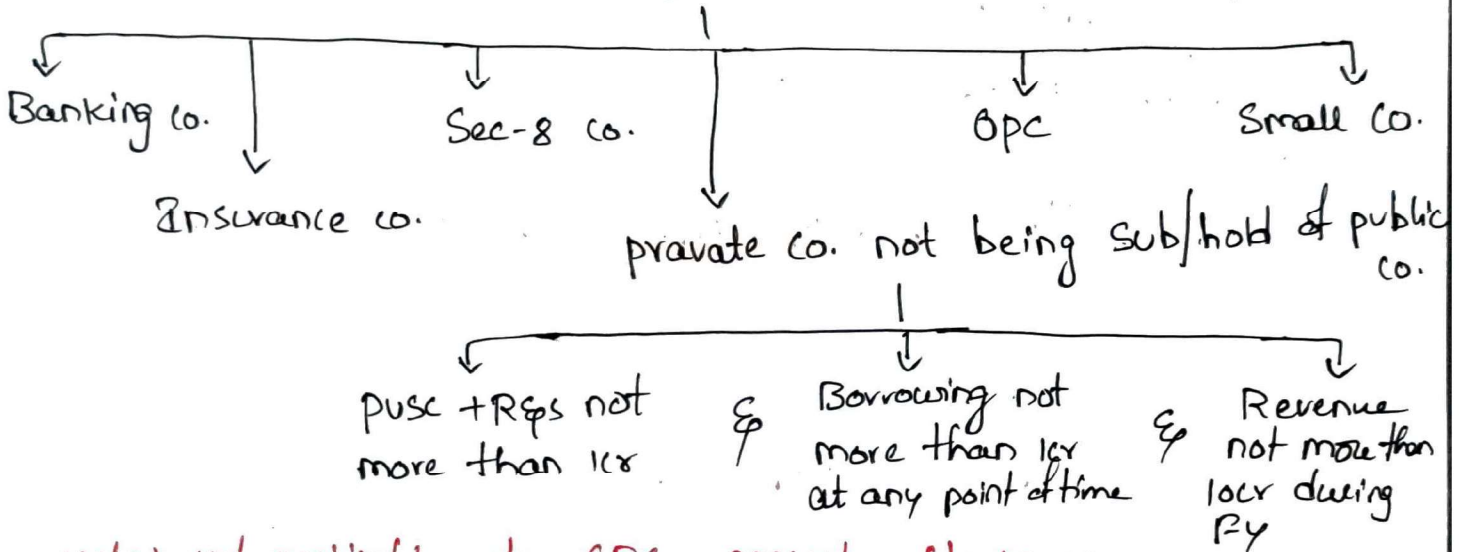 Banking co.
Sec-8 co.
Opc
Small Co.
Insurance co.
pravate co. not being sub/hold of public
co.
PUSC + R&S not
more than 1cr
&
Borrowing not
more than 1cr
at any point of time
&
Revenue
not more than
10cr during
FY